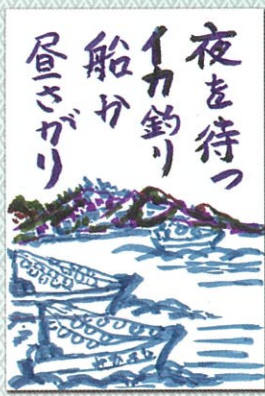 夜を待つ
イカ釣り
船か
昼さがり